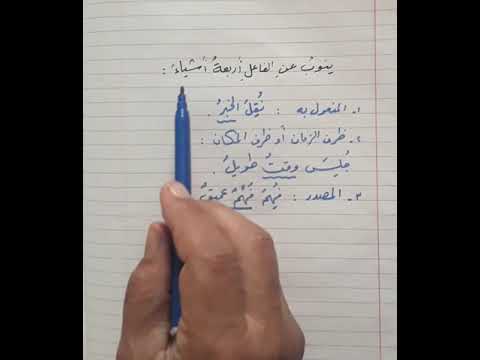 ينوبُ عنِ الفاعلِ أربعةُ أشياءَ :
١. المفعول به : نُقِلَ الخبرُ .
٢. ظرف الزمان أو ظرف المكان :
جُلِسَ وقتٌ طويلٌ .
٣. المصدر : فُهِمَ فَهْمٌ عميقٌ